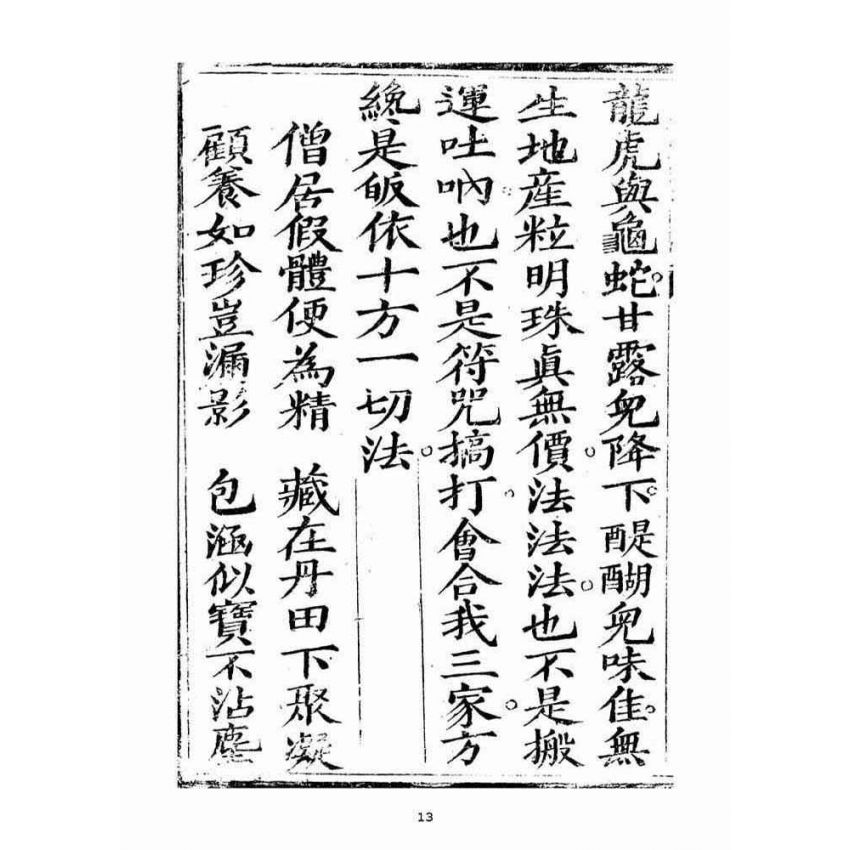 龍虎與龜蛇。甘露兒降下。醍醐兒味佳。無
生地。産粒明珠眞無價。法法法。也不是搬
運吐吶。也不是符咒搞打。會合我三家。方
纔是皈依十方一切法。
僧居假體便為精　藏在丹田下聚凝
顧養如珍豈漏影　包涵似寶不沾塵
13